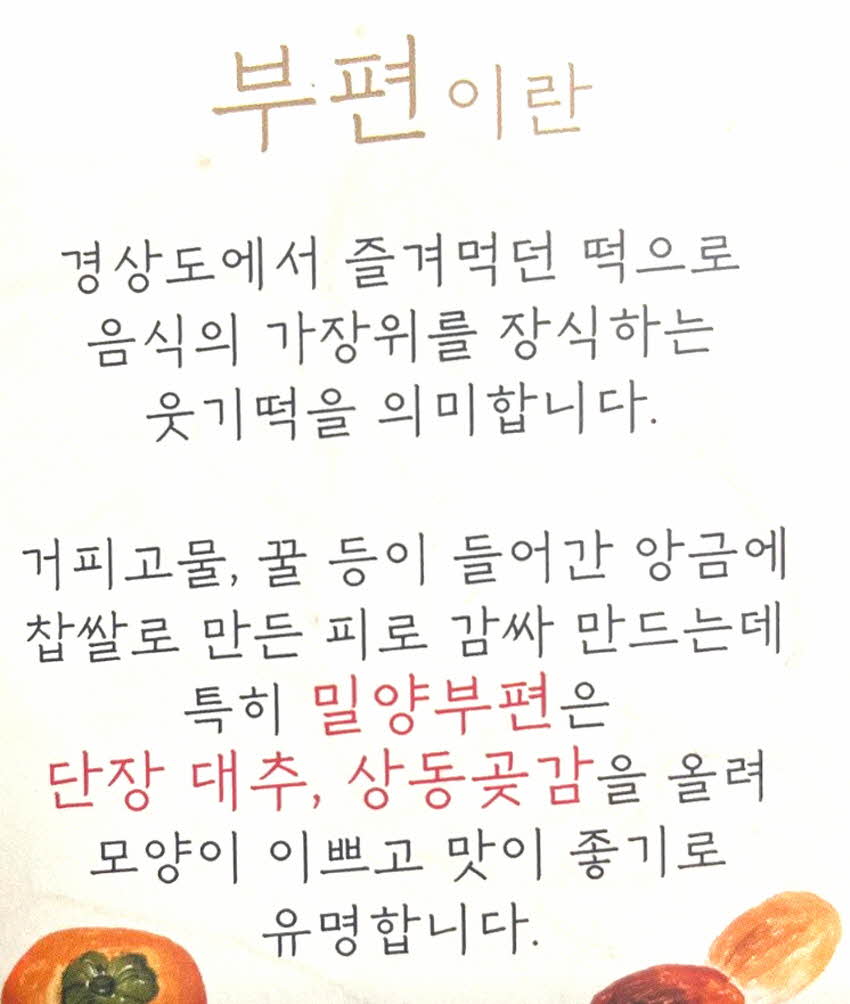 부편이란
경상도에서 즐겨먹던 떡으로
음식의 가장위를 장식하는
웃기떡을 의미합니다.
거피고물, 꿀 등이 들어간 앙금에
찹쌀로 만든 피로 감싸 만드는데
특히 밀양부편은
단장 대추, 상동곶감을 올려
모양이 이쁘고 맛이 좋기로
유명합니다.